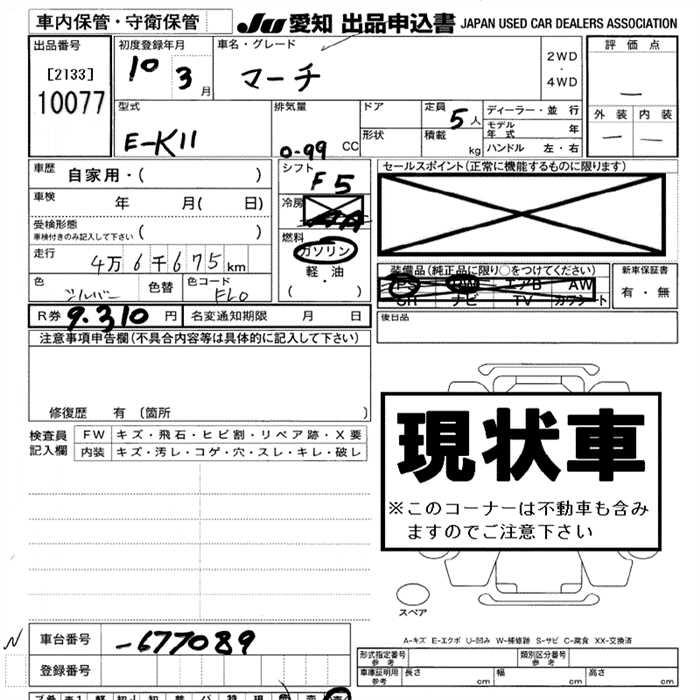 車内保管・守衛保管
JU 愛知 出品申込書 JAPAN USED CAR DEALERS ASSOCIATION
出品番号
[2133]
10077
初度登録年月
10 3 月
車名・グレード
マーチ
2WD
・
4WD
評価点
—
外装 内装
— —
型式
E-K11
排気量
0-99 CC
ドア
形状
定員
5人
積載
kg
ディーラー・並行
モデル年式 年
ハンドル 左・右
車歴 自家用・( )
車検 年 月( 日)
受検形態
車検付きのみ記入して下さい ( )
走行 4万6千675km
色 シルバー 色替 色コード EL0
シフト
F5
冷房
AA
燃料
ガソリン
・
軽油
( ・ )
セールスポイント(正常に機能するものに限ります)
装備品(純正品に限り○をつけてください)
PS PW エアB AW
SR ナビ TV カワシート
新車保証書
有・無
R券 9.310 円 名変通知期限 月 日
後日品
注意事項申告欄(不具合内容等は具体的に記入して下さい)
修復歴 有 (箇所 )
検査員記入欄
FW キズ・飛石・ヒビ割・リペア跡・X要
内装 キズ・汚レ・コゲ・穴・スレ・キレ・破レ
現状車
※このコーナーは不動車も含み
ますのでご注意下さい
スペア
A-キズ E-エクボ U-凹み W-補修跡 S-サビ C-腐食 XX-交換済
N
車台番号 -677089
登録番号
形式指定番号
参考
類別区分番号
参考
車庫証明用
参考
長さ cm 幅 cm 高さ cm